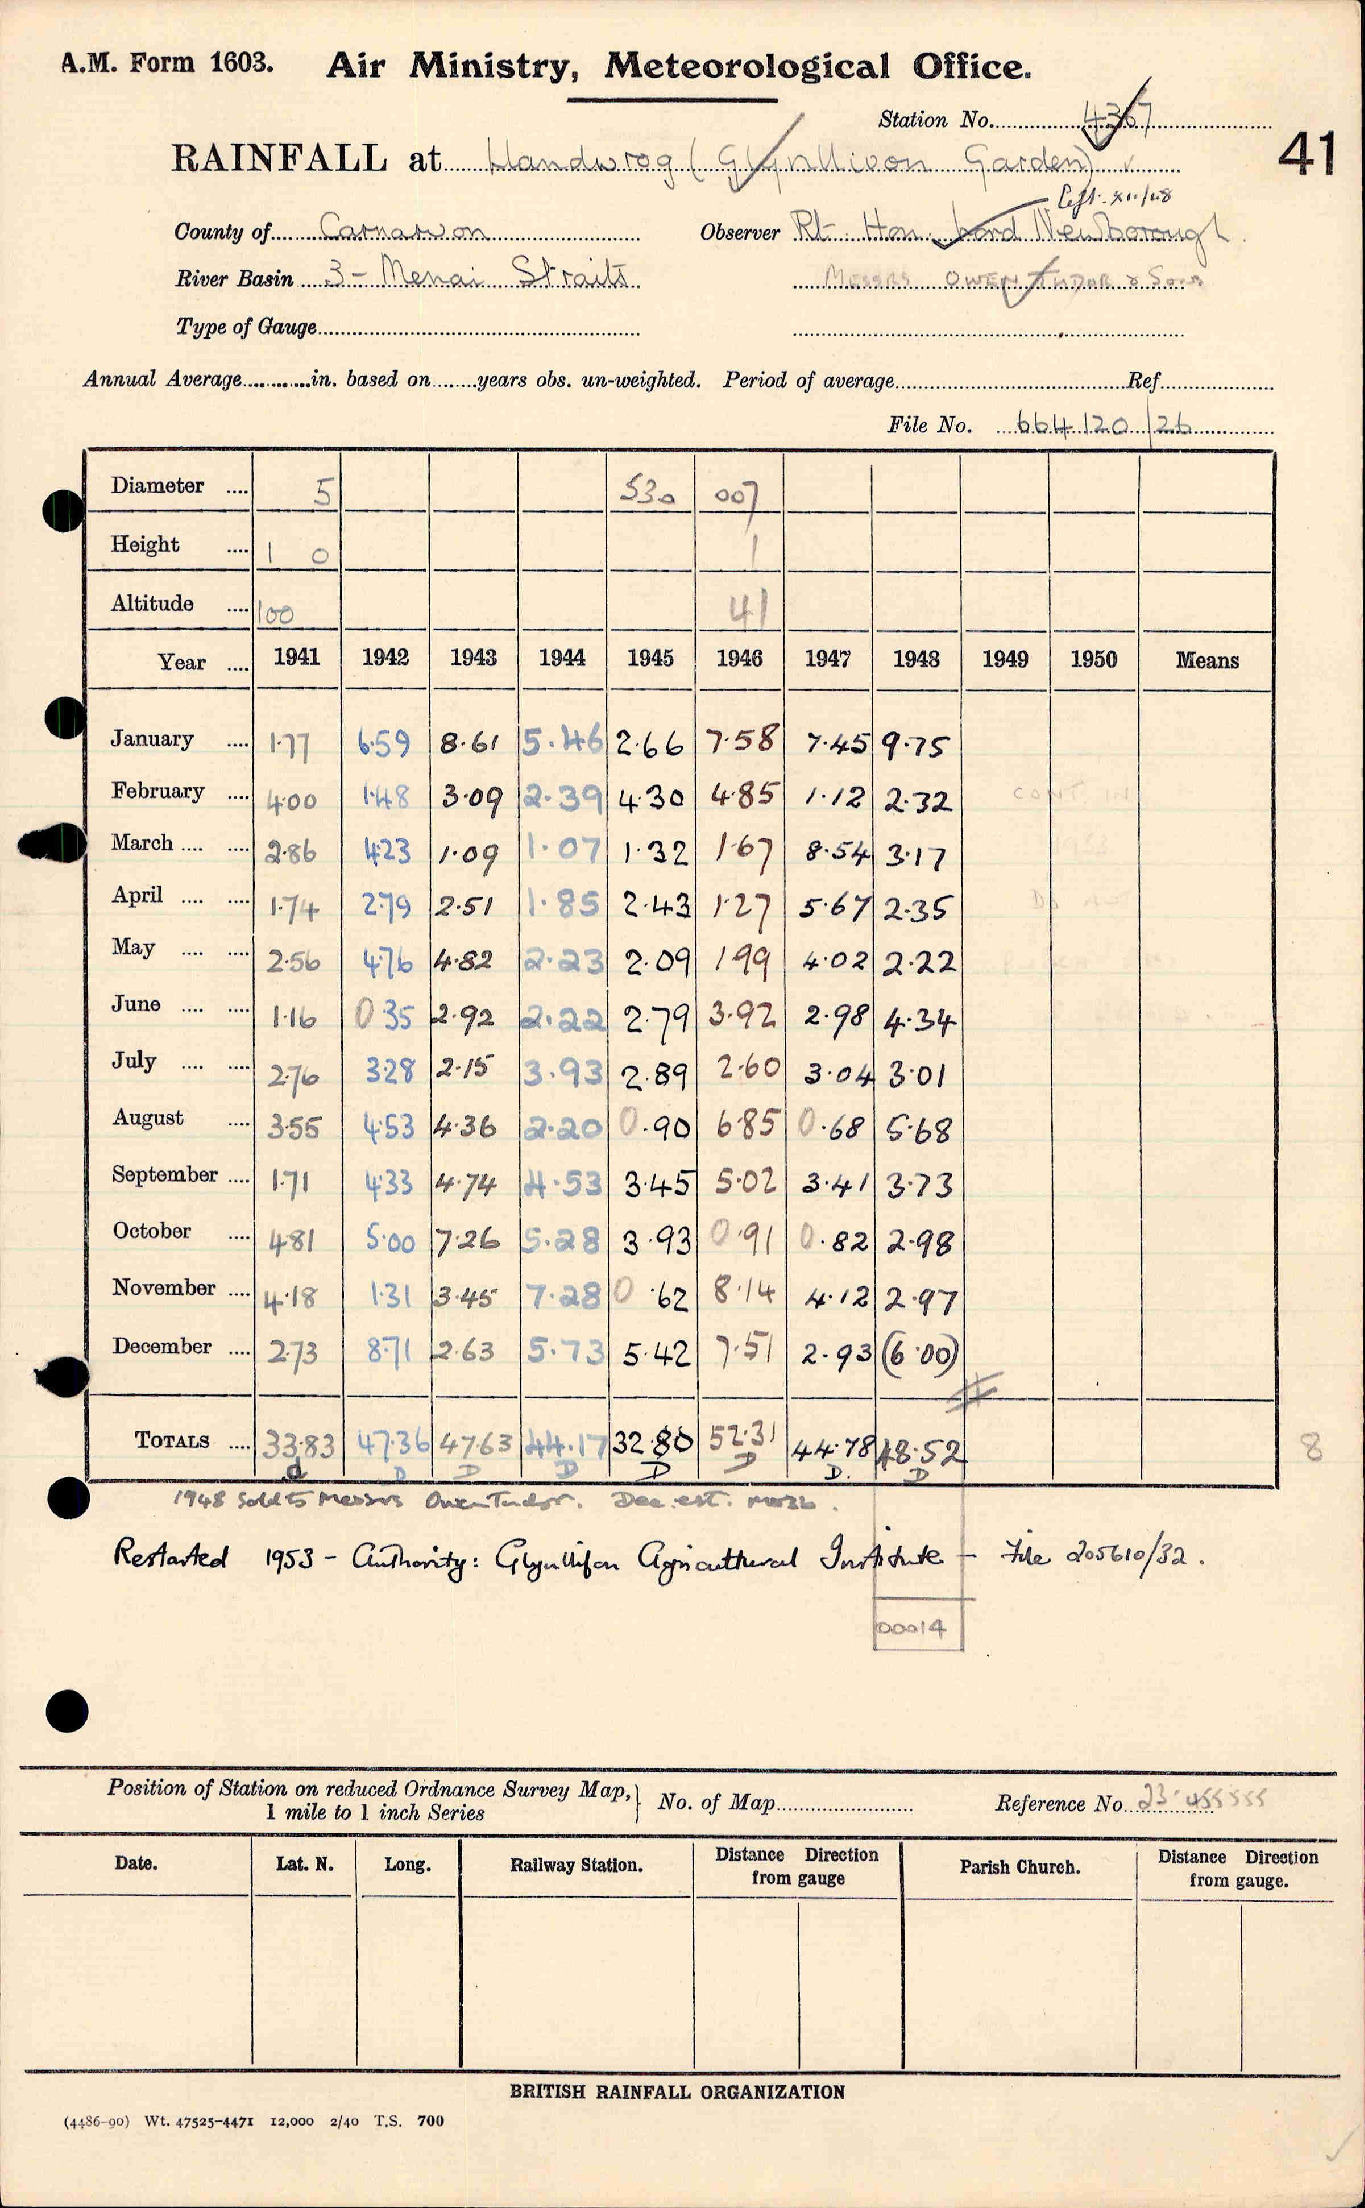 A.M. Form 1603. Air Ministry, Meteorological Office.
Station No. 4367
41
RAINFALL at Llandwrog (Glynllivon Garden)
Left. XII/48
County of Carnarvon Observer Rt. Hon. Lord Newborough.
River Basin 3 - Menai Straits MESSRS OWEN TUDOR & Sons
Type of Gauge
Annual Average in. based on years obs. un-weighted. Period of average Ref.
File No. 664120/26
Diameter .... 5 530 007
Height .... 1 0 1
Altitude .... 100 41
Year .... 1941 1942 1943 1944 1945 1946 1947 1948 1949 1950 Means
January .... 1.77 6.59 8.61 5.46 2.66 7.58 7.45 9.75
February .... 4.00 1.48 3.09 2.39 4.30 4.85 1.12 2.32 CONT. IN
March .... .... 2.86 4.23 1.09 1.07 1.32 1.67 8.54 3.17 1953
April .... .... 1.74 2.79 2.51 1.85 2.43 1.27 5.67 2.35
May .... .... 2.56 4.76 4.82 2.23 2.09 1.99 4.02 2.22
June .... .... 1.16 0.35 2.92 2.22 2.79 3.92 2.98 4.34
July .... .... 2.76 3.28 2.15 3.93 2.89 2.60 3.04 3.01
August .... 3.55 4.53 4.36 2.20 0.90 6.85 0.68 5.68
September .... 1.71 4.33 4.74 4.53 3.45 5.02 3.41 3.73
October .... 4.81 5.00 7.26 5.28 3.93 0.91 0.82 2.98
November .... 4.18 1.31 3.45 7.28 0.62 8.14 4.12 2.97
December .... 2.73 8.71 2.63 5.73 5.42 7.51 2.93 (6.00)
TOTALS .... 33.83 47.36 47.63 44.17 32.80 52.31 44.78 48.52 8
d D D D D D D. D
1948 Sold to Messrs Owen Tudor. Dec. est.
Restarted 1953 - Authority: Glynllifon Agricultural Institute - File 205610/32.
00014
Position of Station on reduced Ordnance Survey Map, 1 mile to 1 inch Series No. of Map Reference No. 23.455555
Date. Lat. N. Long. Railway Station. Distance from gauge Direction Parish Church. Distance Direction from gauge.
BRITISH RAINFALL ORGANIZATION
(4486-90) Wt. 47525-4471 12,000 2/40 T.S. 700